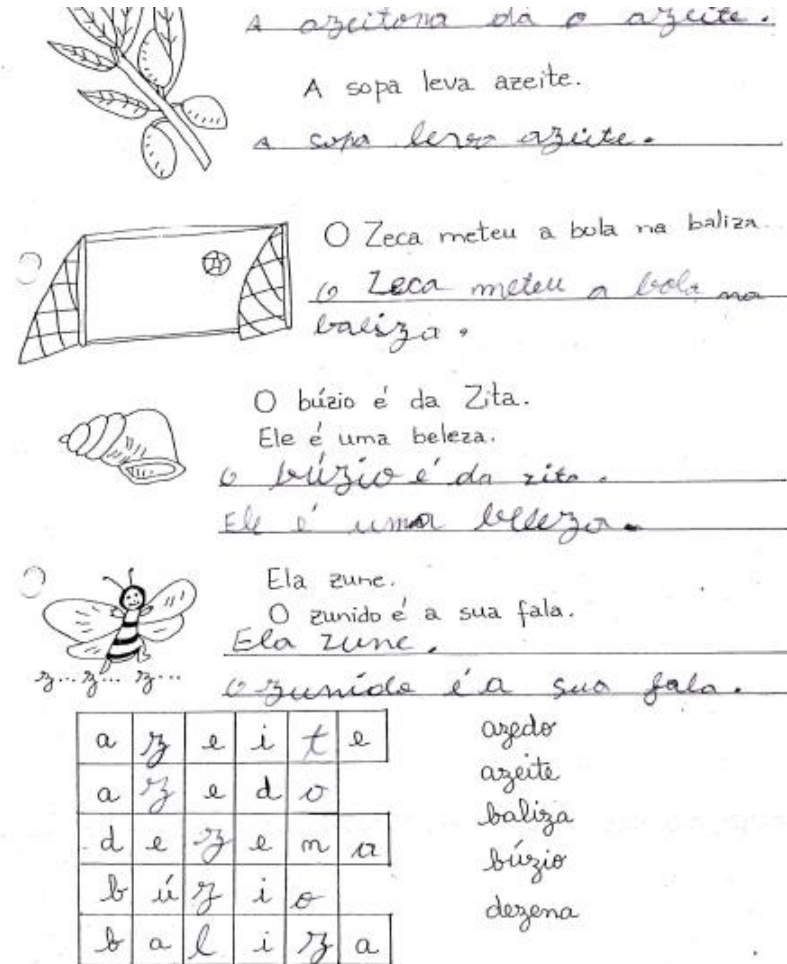 A azeitona dá o azeite.
A sopa leva azeite.
A sopa leva azeite.
O Zeca meteu a bola na baliza.
O Zeca meteu a bola na
baliza.
O búzio é da Zita.
Ele é uma beleza.
O búzio é da zita.
Ele é uma beleza.
Ela zune.
O zunido é a sua fala.
Ela zune.
z... z... z...
O zunido é a sua fala.
a z e i t e
a z e d o
d e z e m a
b ú z i o
b a l i z a
azedo
azeite
baliza
búzio
dezena